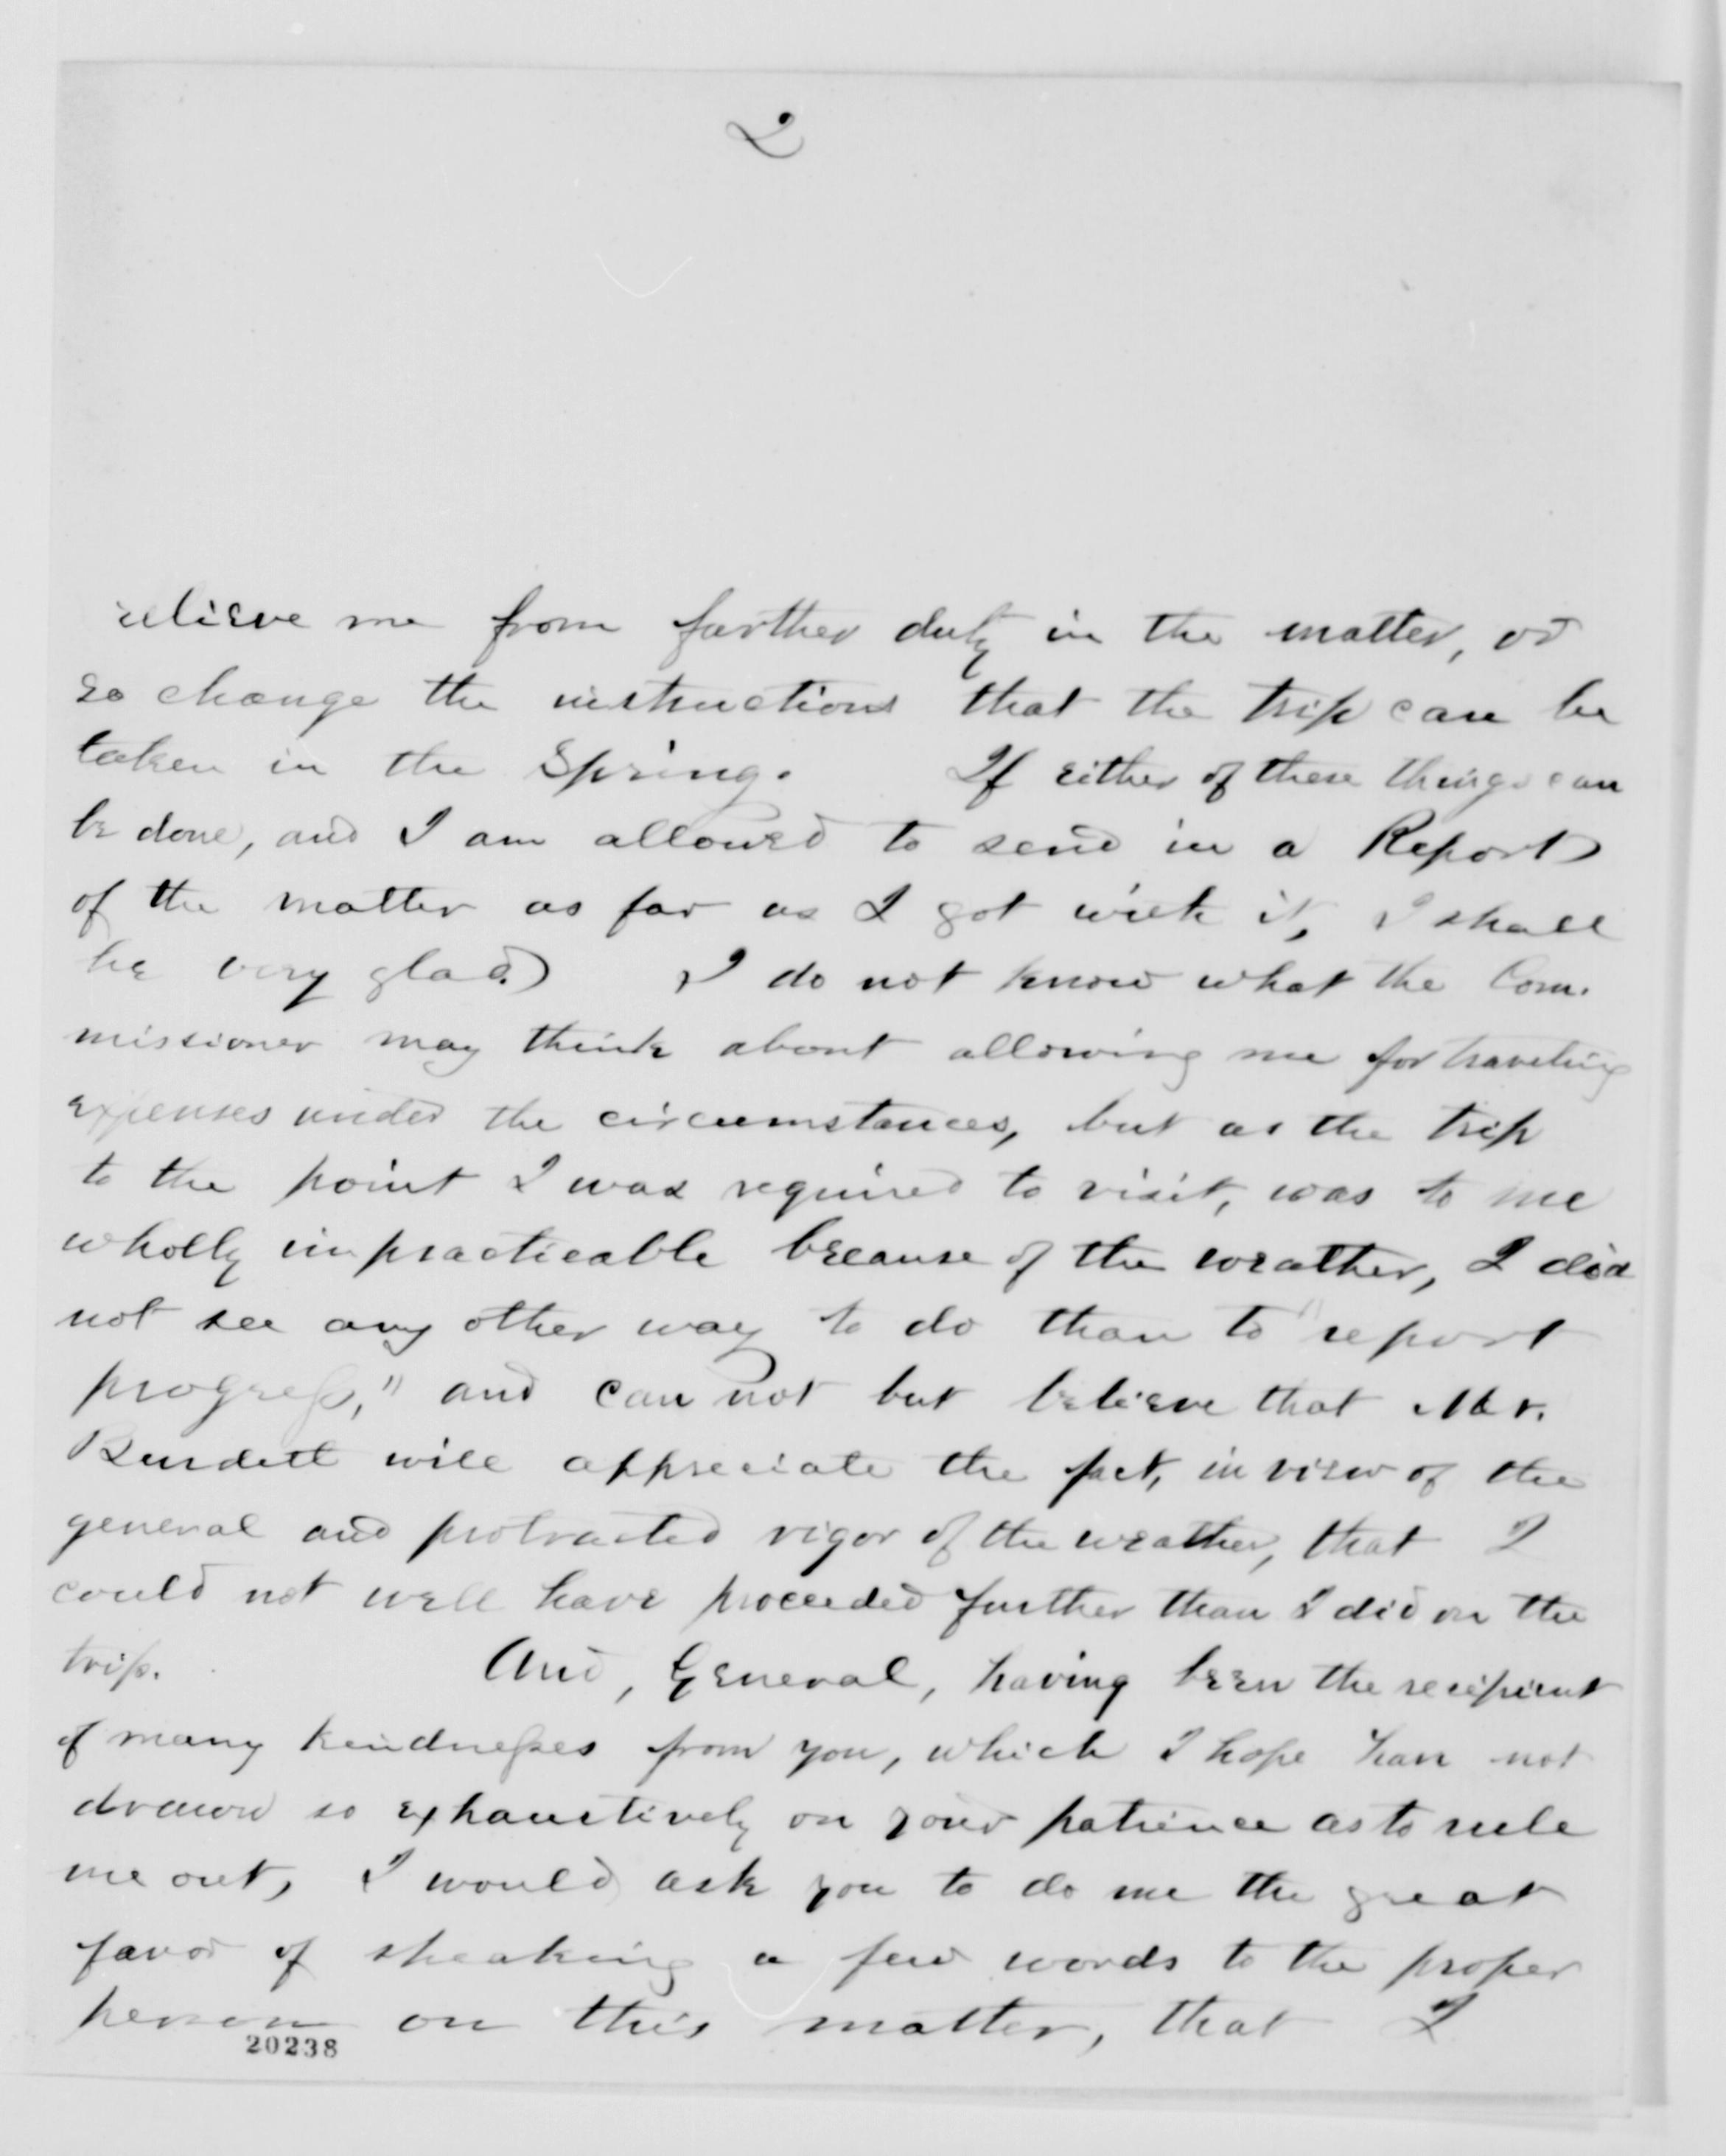 2
relieve me from farther duty in the matter, or
so change the instructions that the trip can be
taken in the Spring. If either of these things can
be done, and I am allowed to send in a Report
of the matter as far as I got with it, I shall
be very glad. I do not know what the Com.
missioner may think about allowing me for traveling
expenses under the circumstances, but as the trip
to the point I was required to visit, was to me
wholly impracticable because of the weather, I did
not see any other way to do than to "report
progress," and can not but believe that Mr.
Burdett will appreciate the fact, in view of the
general and protracted rigor of the weather, that I
could not well have proceeded further than I did on the
trip. And, General, having been the recipient
of many kindnesses from you, which I hope have not
drawn so exhaustively on your patience as to rule
me out, I would ask you to do me the great
favor of speaking a few words to the proper
person on this matter, that I
20238